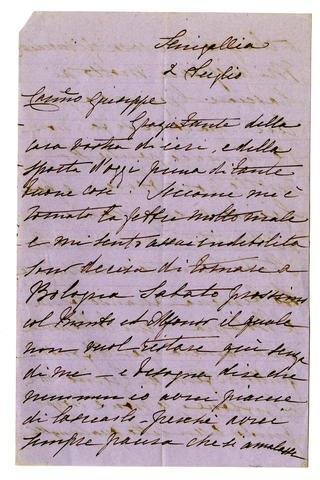 Senigallia
2 Luglio
Carino Giuseppe
Grazie tante della
cara vostra di ieri, e della
sporta d'oggi piena di tante
buone cose. Siccome mi è
tornata la febbre molto male
e mi sento assai indebolita
sono decisa di tornare a
Bologna Sabato prossimo
col ed Alfonso il quale
non vuol restare qui senza
di me — e bisogna dire che
nemmen io avrei piacere
di lasciarlo perchè avrei
sempre paura che si amalasse